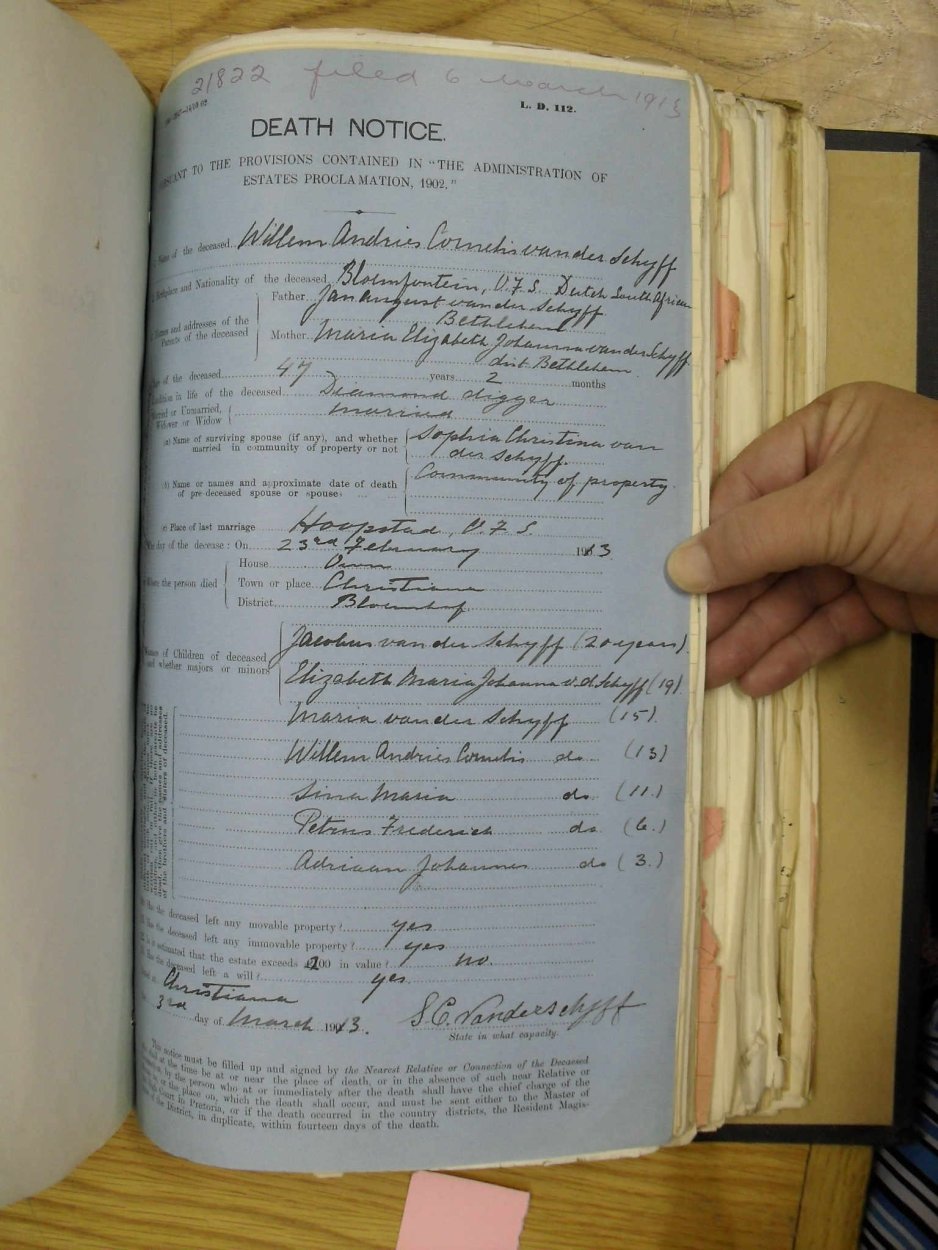 21822 filed 6 March 1913
L. D. 112.
DEATH NOTICE.
TO THE PROVISIONS CONTAINED IN "THE ADMINISTRATION OF
ESTATES PROCLAMATION, 1902."
Name of the deceased Willem Andries Cornelis van der Schyff
Birthplace and Nationality of the deceased Bloemfontein, O.F.S. Dutch South African
Names and addresses of the Parents of the deceased
Father Jan August van der Schyff
Bethlehem
Mother Maria Elizabeth Johanna van der Schyff
dist Bethlehem
of the deceased 47 years 2 months
Condition in life of the deceased Diamond digger
Married or Unmarried, Widower or Widow married
(a) Name of surviving spouse (if any), and whether married in community of property or not Sophia Christina van
der Schyff.
Community of property.
(b) Name or names and approximate date of death of pre-deceased spouse or spouses
(c) Place of last marriage Hoopstad, O.F.S.
The day of the decease: On 23rd February 1913
Where the person died
House Own
Town or place Christiana
District Bloemhof
Names of Children of deceased and whether majors or minors
Jacobus van der Schyff (20 years).
Elizabeth Maria Johanna v.d Schyff (19)
Maria van der Schyff (15)
Willem Andries Cornelis do (13)
Sina Maria do (11.)
Petrus Frederick do. (6.)
Adriaan Johannes do (3.)
Has the deceased left any movable property? yes
Has the deceased left any immovable property? yes
Is it estimated that the estate exceeds 00 in value? no.
Has the deceased left a will? yes.
Dated at Christiana
3rd day of March 1913.
S.C. Vanderschyff
State in what capacity.
This notice must be filled up and signed by the Nearest Relative or Connection of the Deceased
at the time be at or near the place of death, or in the absence of such near Relative or
by the person who at or immediately after the death shall have the chief charge of the
or the place on, which the death shall occur, and must be sent either to the Master of
Court in Pretoria, or if the death occurred in the country districts, the Resident Magis-
of the District, in duplicate, within fourteen days of the death.